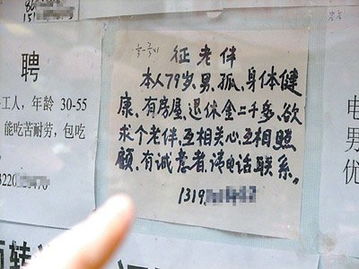 聘
工人，年龄 30-55
能吃苦耐劳，包吃
征老伴
本人79岁、男、孤、身体健
康、有房屋、退休金二千多、欲
求个老伴、互相关心、互相照
顾、有诚意者、请电话联系。
1319
电
优